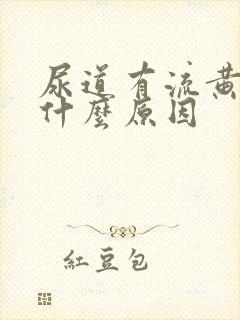 尿道有流黄
什麼原因
紅豆包